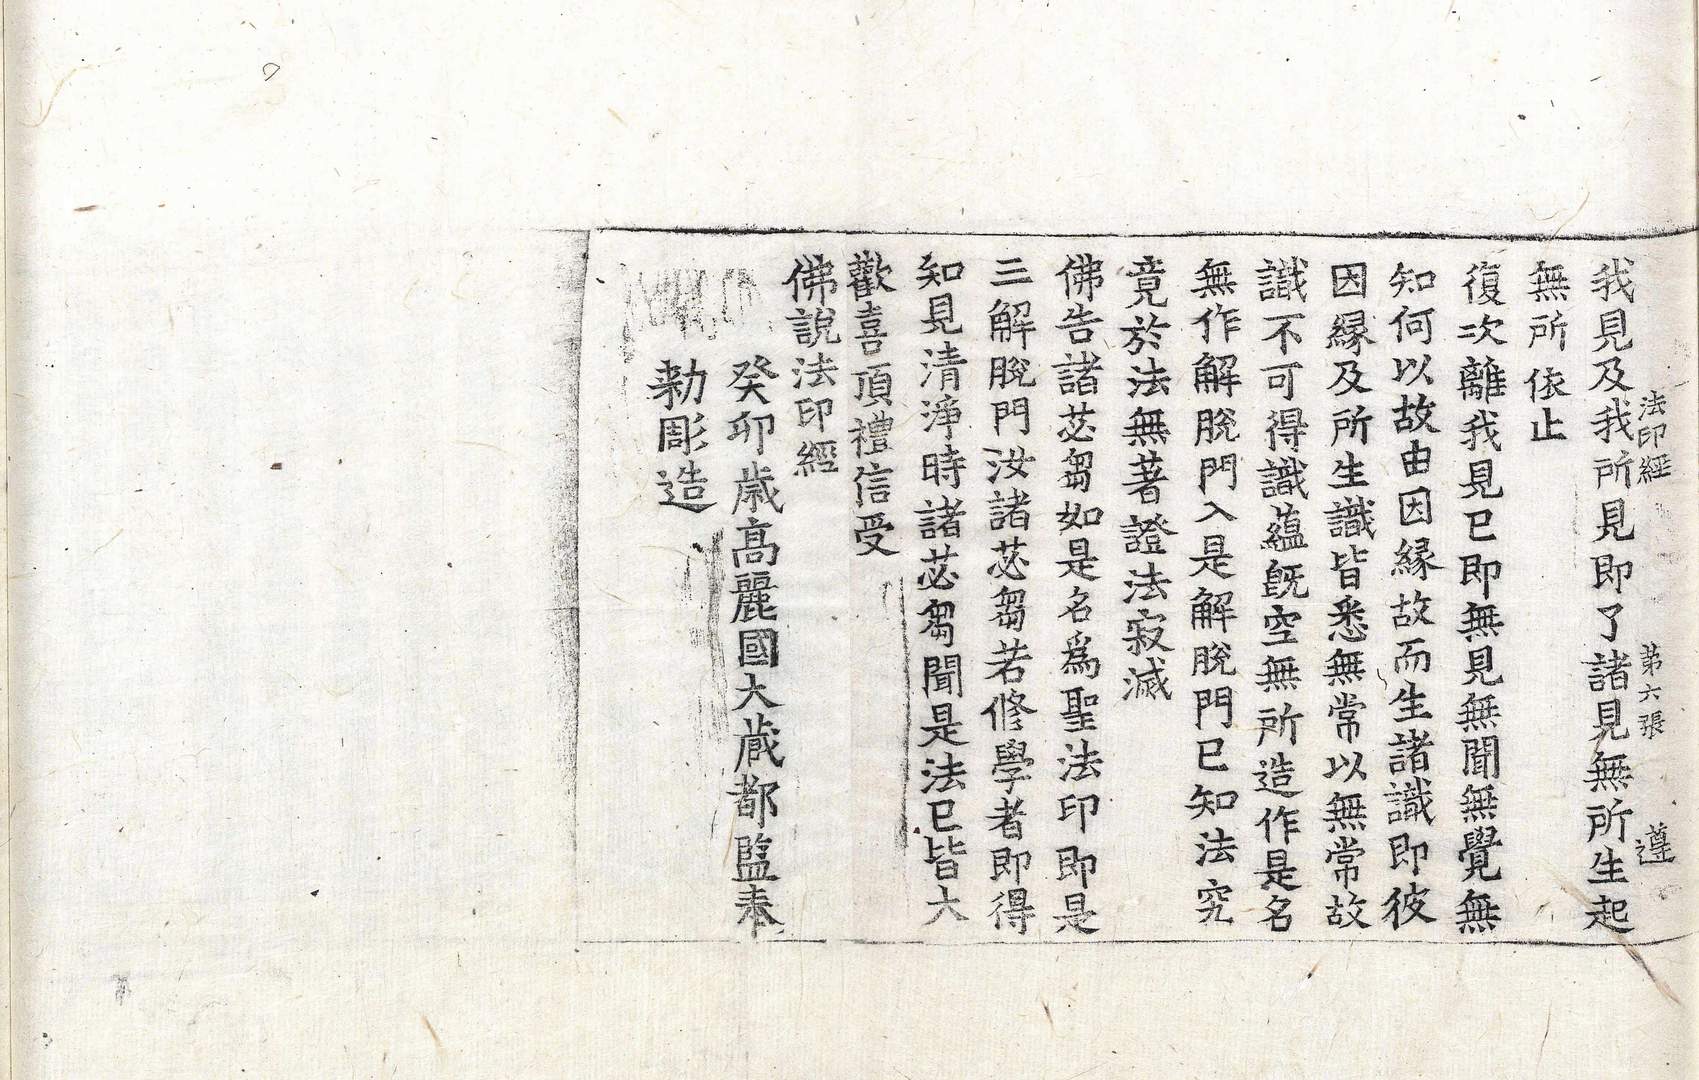 法印經 第六張 遵
我見及我所見即了諸見無所生起
無所依止
復次離我見已即無見無聞無覺無
知何以故由因緣故而生諸識即彼
因緣及所生識皆悉無常以無常故
識不可得識蘊旣空無所造作是名
無作解脫門入是解脫門已知法究
竟於法無著證法寂滅
佛告諸苾芻如是名爲聖法印即是
三解脫門汝諸苾芻若修學者即得
知見清淨時諸苾芻聞是法已皆大
歡喜頂禮信受
佛說法印經
癸卯歲高麗國大藏都監奉
勑彫造